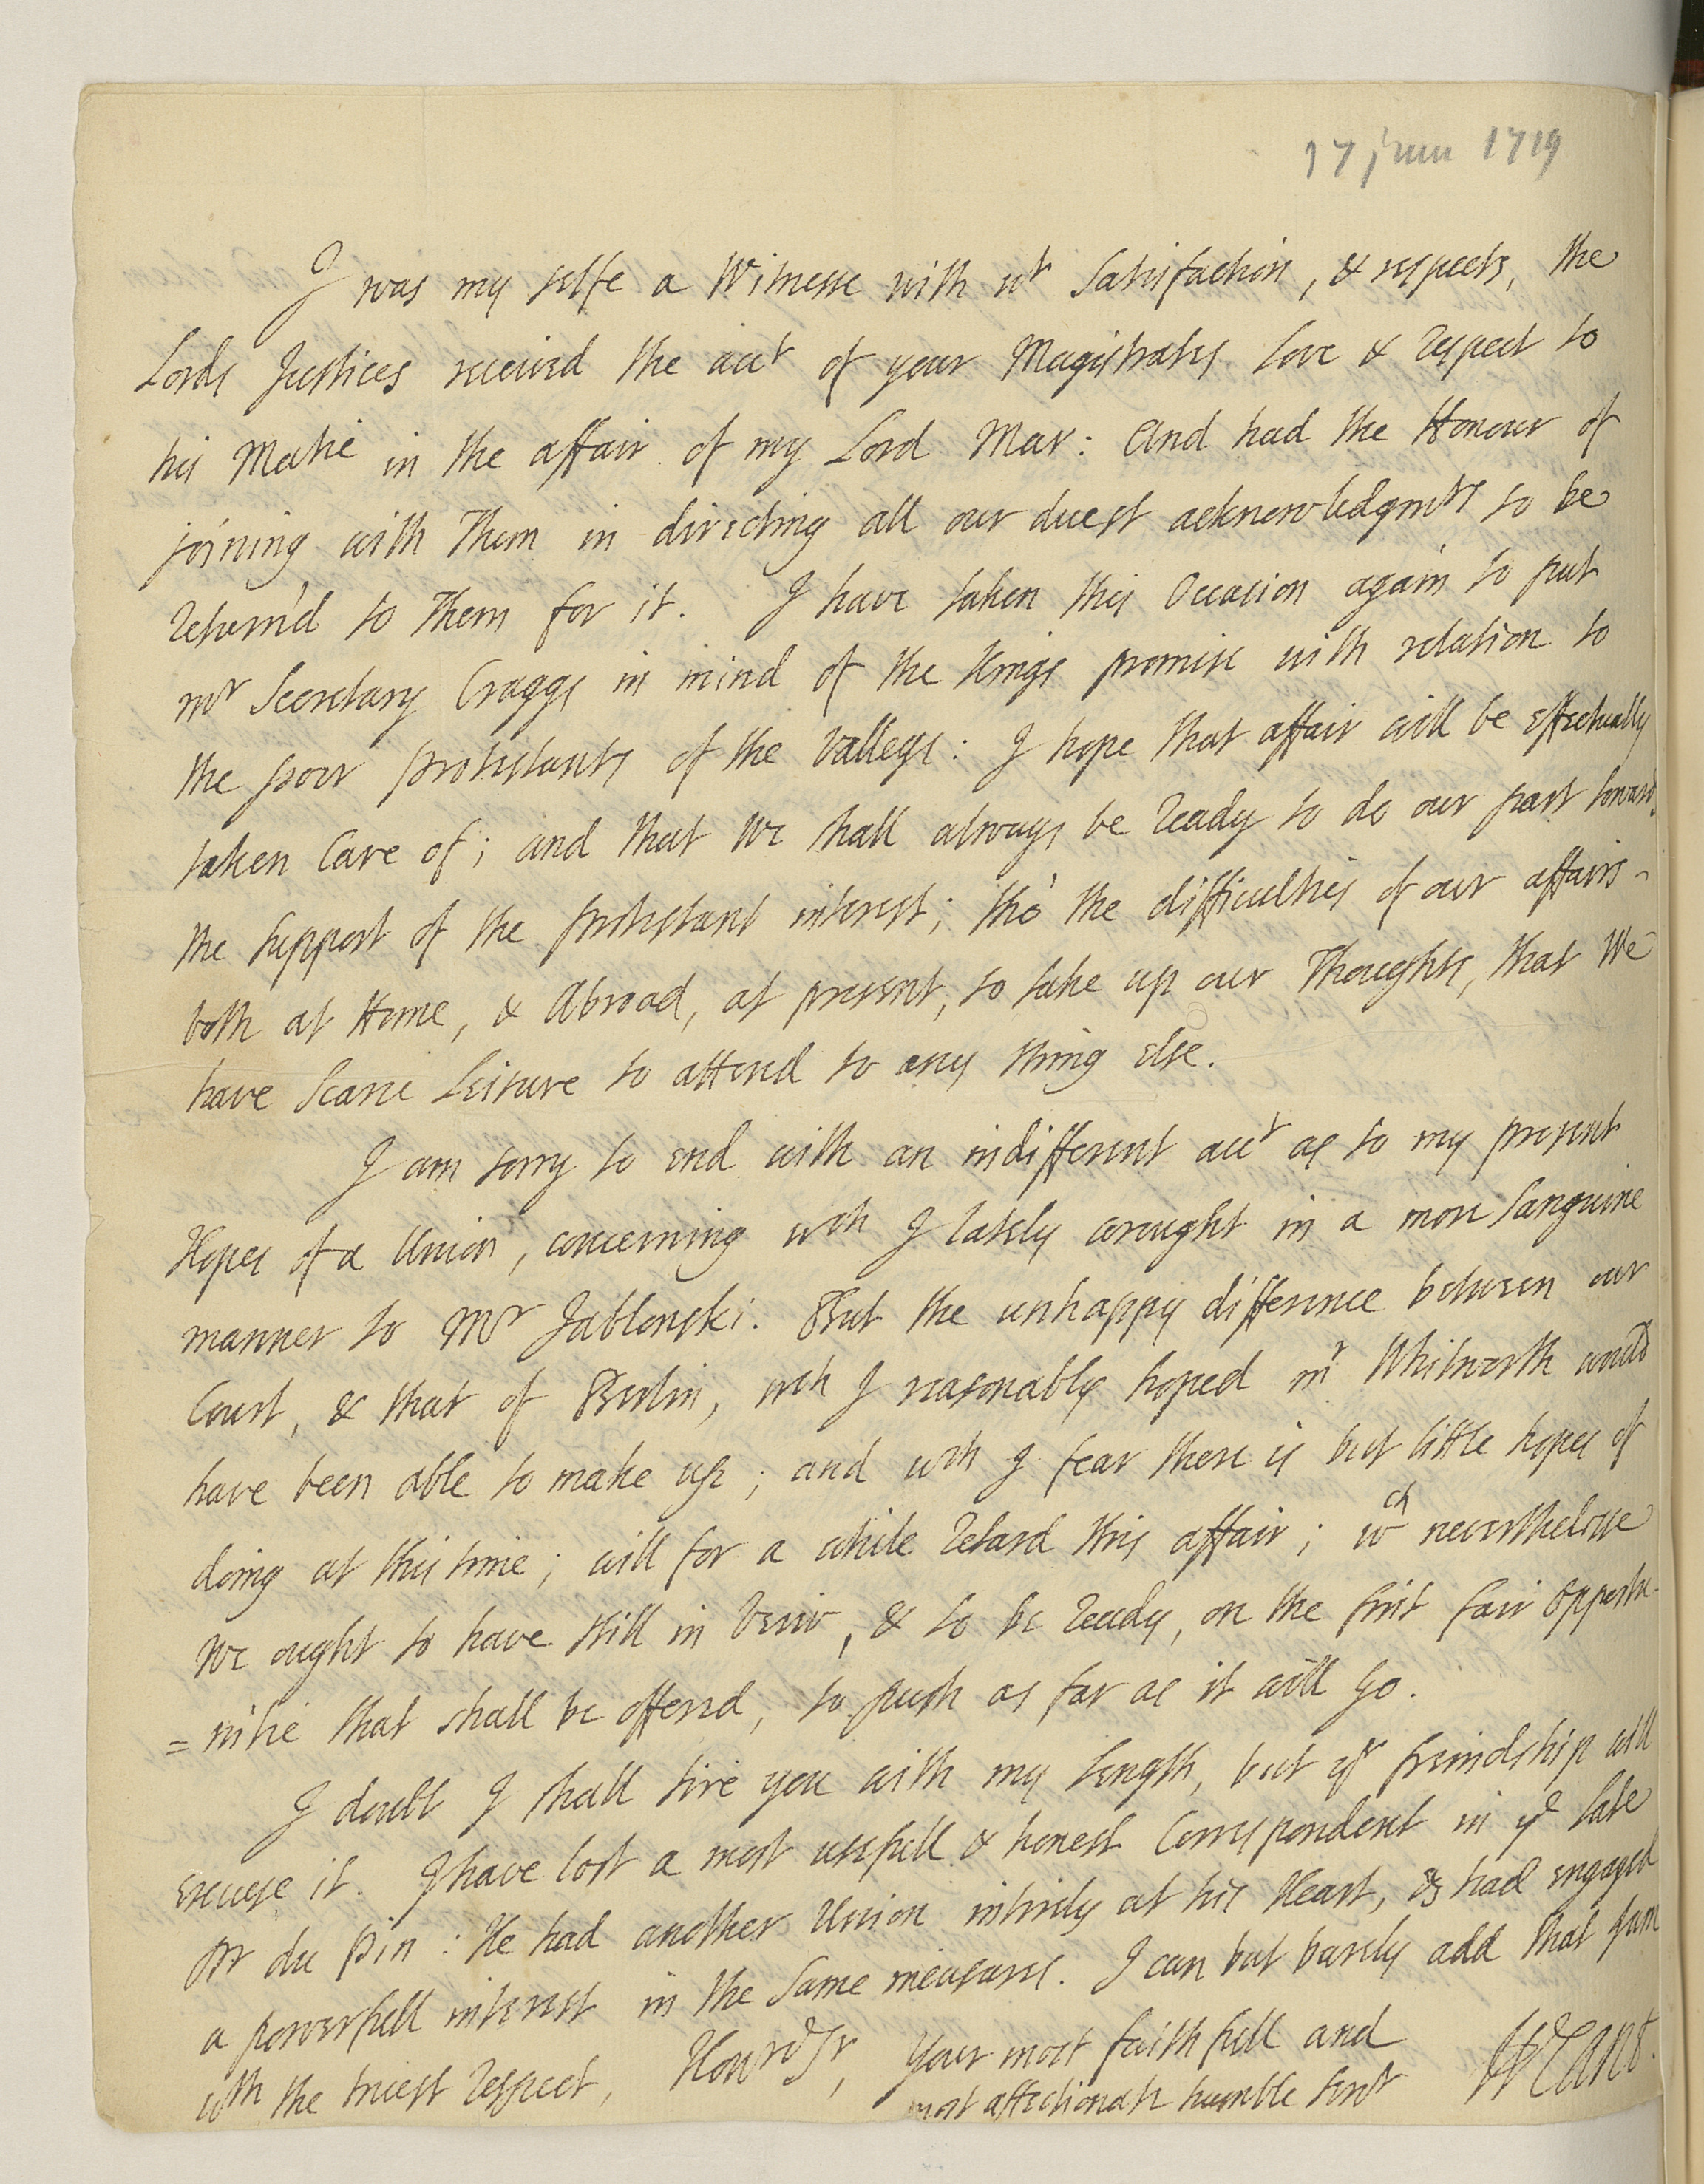 17 juin 1719
I was my selfe a Witnesse with wt Satisfaction, & respects, the
Lords Justices received the acct of your Magistrates Love & respect to
his Matie in the affair of my Lord Mar: And had the Honour of
joining with Them in directing all our duest acknowledgmts to be
return'd to Them for it. I have taken this Occasion again to put
mr Secretary Craggs in mind of the Kings promise with relation to
the poor protestants of the valleys: I hope that affair will be effectually
taken Care of; and that we shall always be ready to do our part toward
the support of the protestant interest; tho' the difficulties of our affairs
both at Home, & Abroad, at present, so take up our Thoughts, that We
have Scarce Leisure to attend to any thing else.
I am sorry to end with an indifferent acct as to my present
Hopes of a Union, concerning wch I lately wrought in a more sanguine
manner to Mr Jablonski. But the unhappy difference between our
Court, & that of Berlin, wch I reasonably hoped mr Whitworth would
have been able to make up; and wch I fear there is but little hopes of
doing at this time; will for a while retard this affair; wch neverthelesse
we ought to have still in veiw, & to be ready, on the first fair opportu-
=nitie that shall be offered, to push as far as it will go.
I doubt I shall tire you with my length, but yr freindship will
excuse it. I have lost a most usefull & honest Correspondent in ye late
Mr du Pin: He had another Union intirely at his Heart, & had engaged
a powerfull interest in the same measures. I can but barely add that I am
wth the truest respect, Honrd Sr, Your most faithfull and
most affectionate humble servt W Cant.